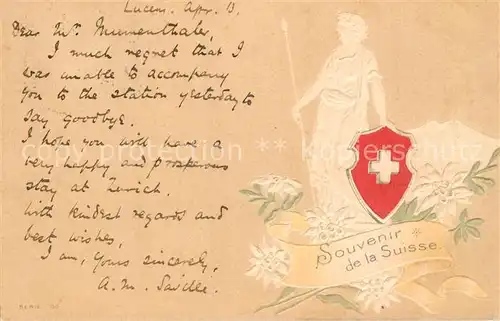 Lucern. Apr. 13.
Dear Mr. Mumenthaler,
I much regret that I
was unable to accompany
you to the station yesterday to
say goodbye.
I hope you will have a
very happy and prosperous
stay at Zurich.
With kindest regards and
best wishes,
I am, yours sincerely,
A. M. Saville.
Souvenir
de la Suisse